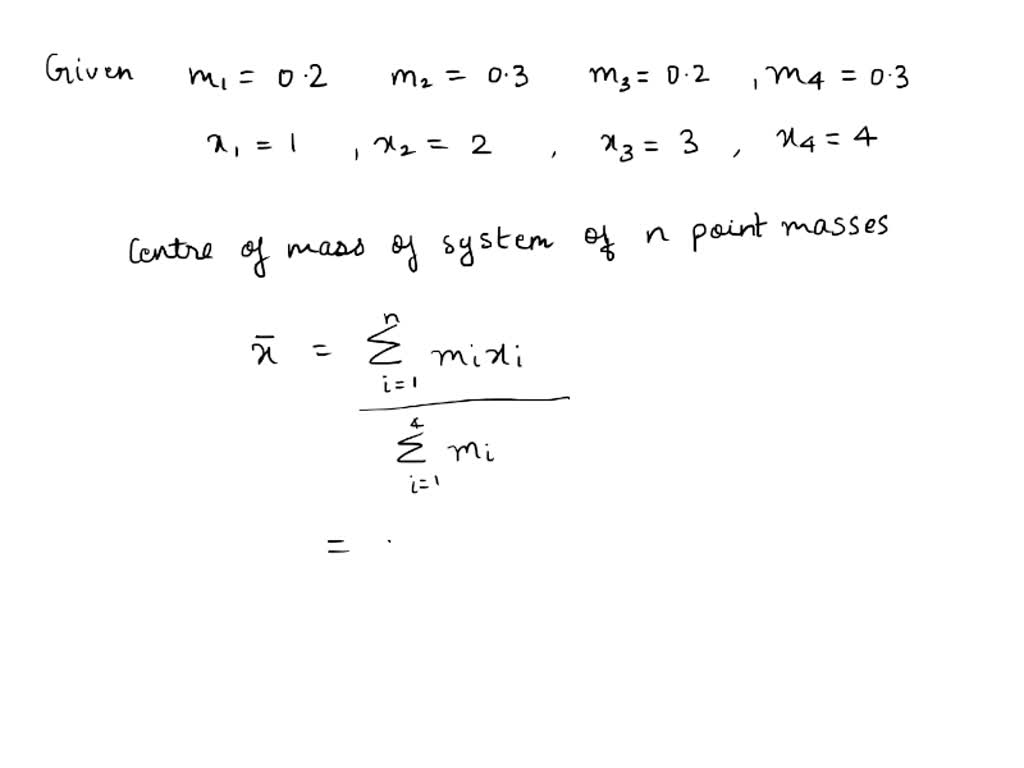 Given m₁ = 0.2 m₂ = 0.3 m₃ = 0.2 , m₄ = 0.3
x₁ = 1 , x₂ = 2 , x₃ = 3 , x₄ = 4
Centre of mass of system of n point masses
n
x̄ = Σ mᵢxᵢ
i=1
4
Σ mᵢ
i=1
= .